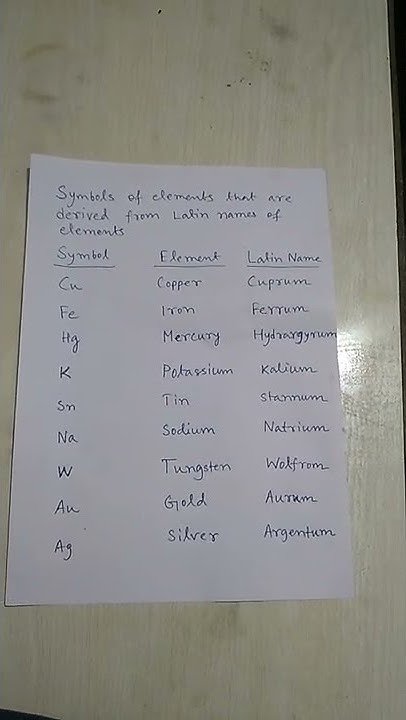 Symbols of elements that are
derived from Latin names of
elements
Symbol Element Latin Name
Cu Copper Cuprum
Fe Iron Ferrum
Hg Mercury Hydrargyrum
K Potassium Kalium
Sn Tin Stannum
Na Sodium Natrium
W Tungsten Wolfrom
Au Gold Aurum
Ag Silver Argentum